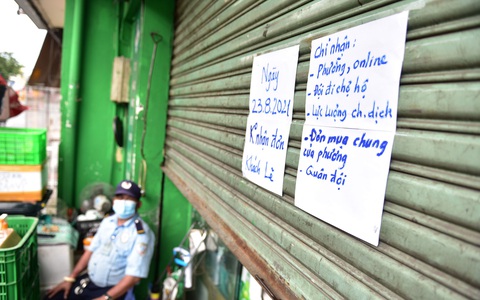 Ngày
23.8.2021
K° nhận đơn
Khách Lẻ
Chỉ nhận:
- Phường, online
- Đội đi chợ hộ
- Lực Lượng ch. dịch
- Đơn mua chung
của phường
Quân đội